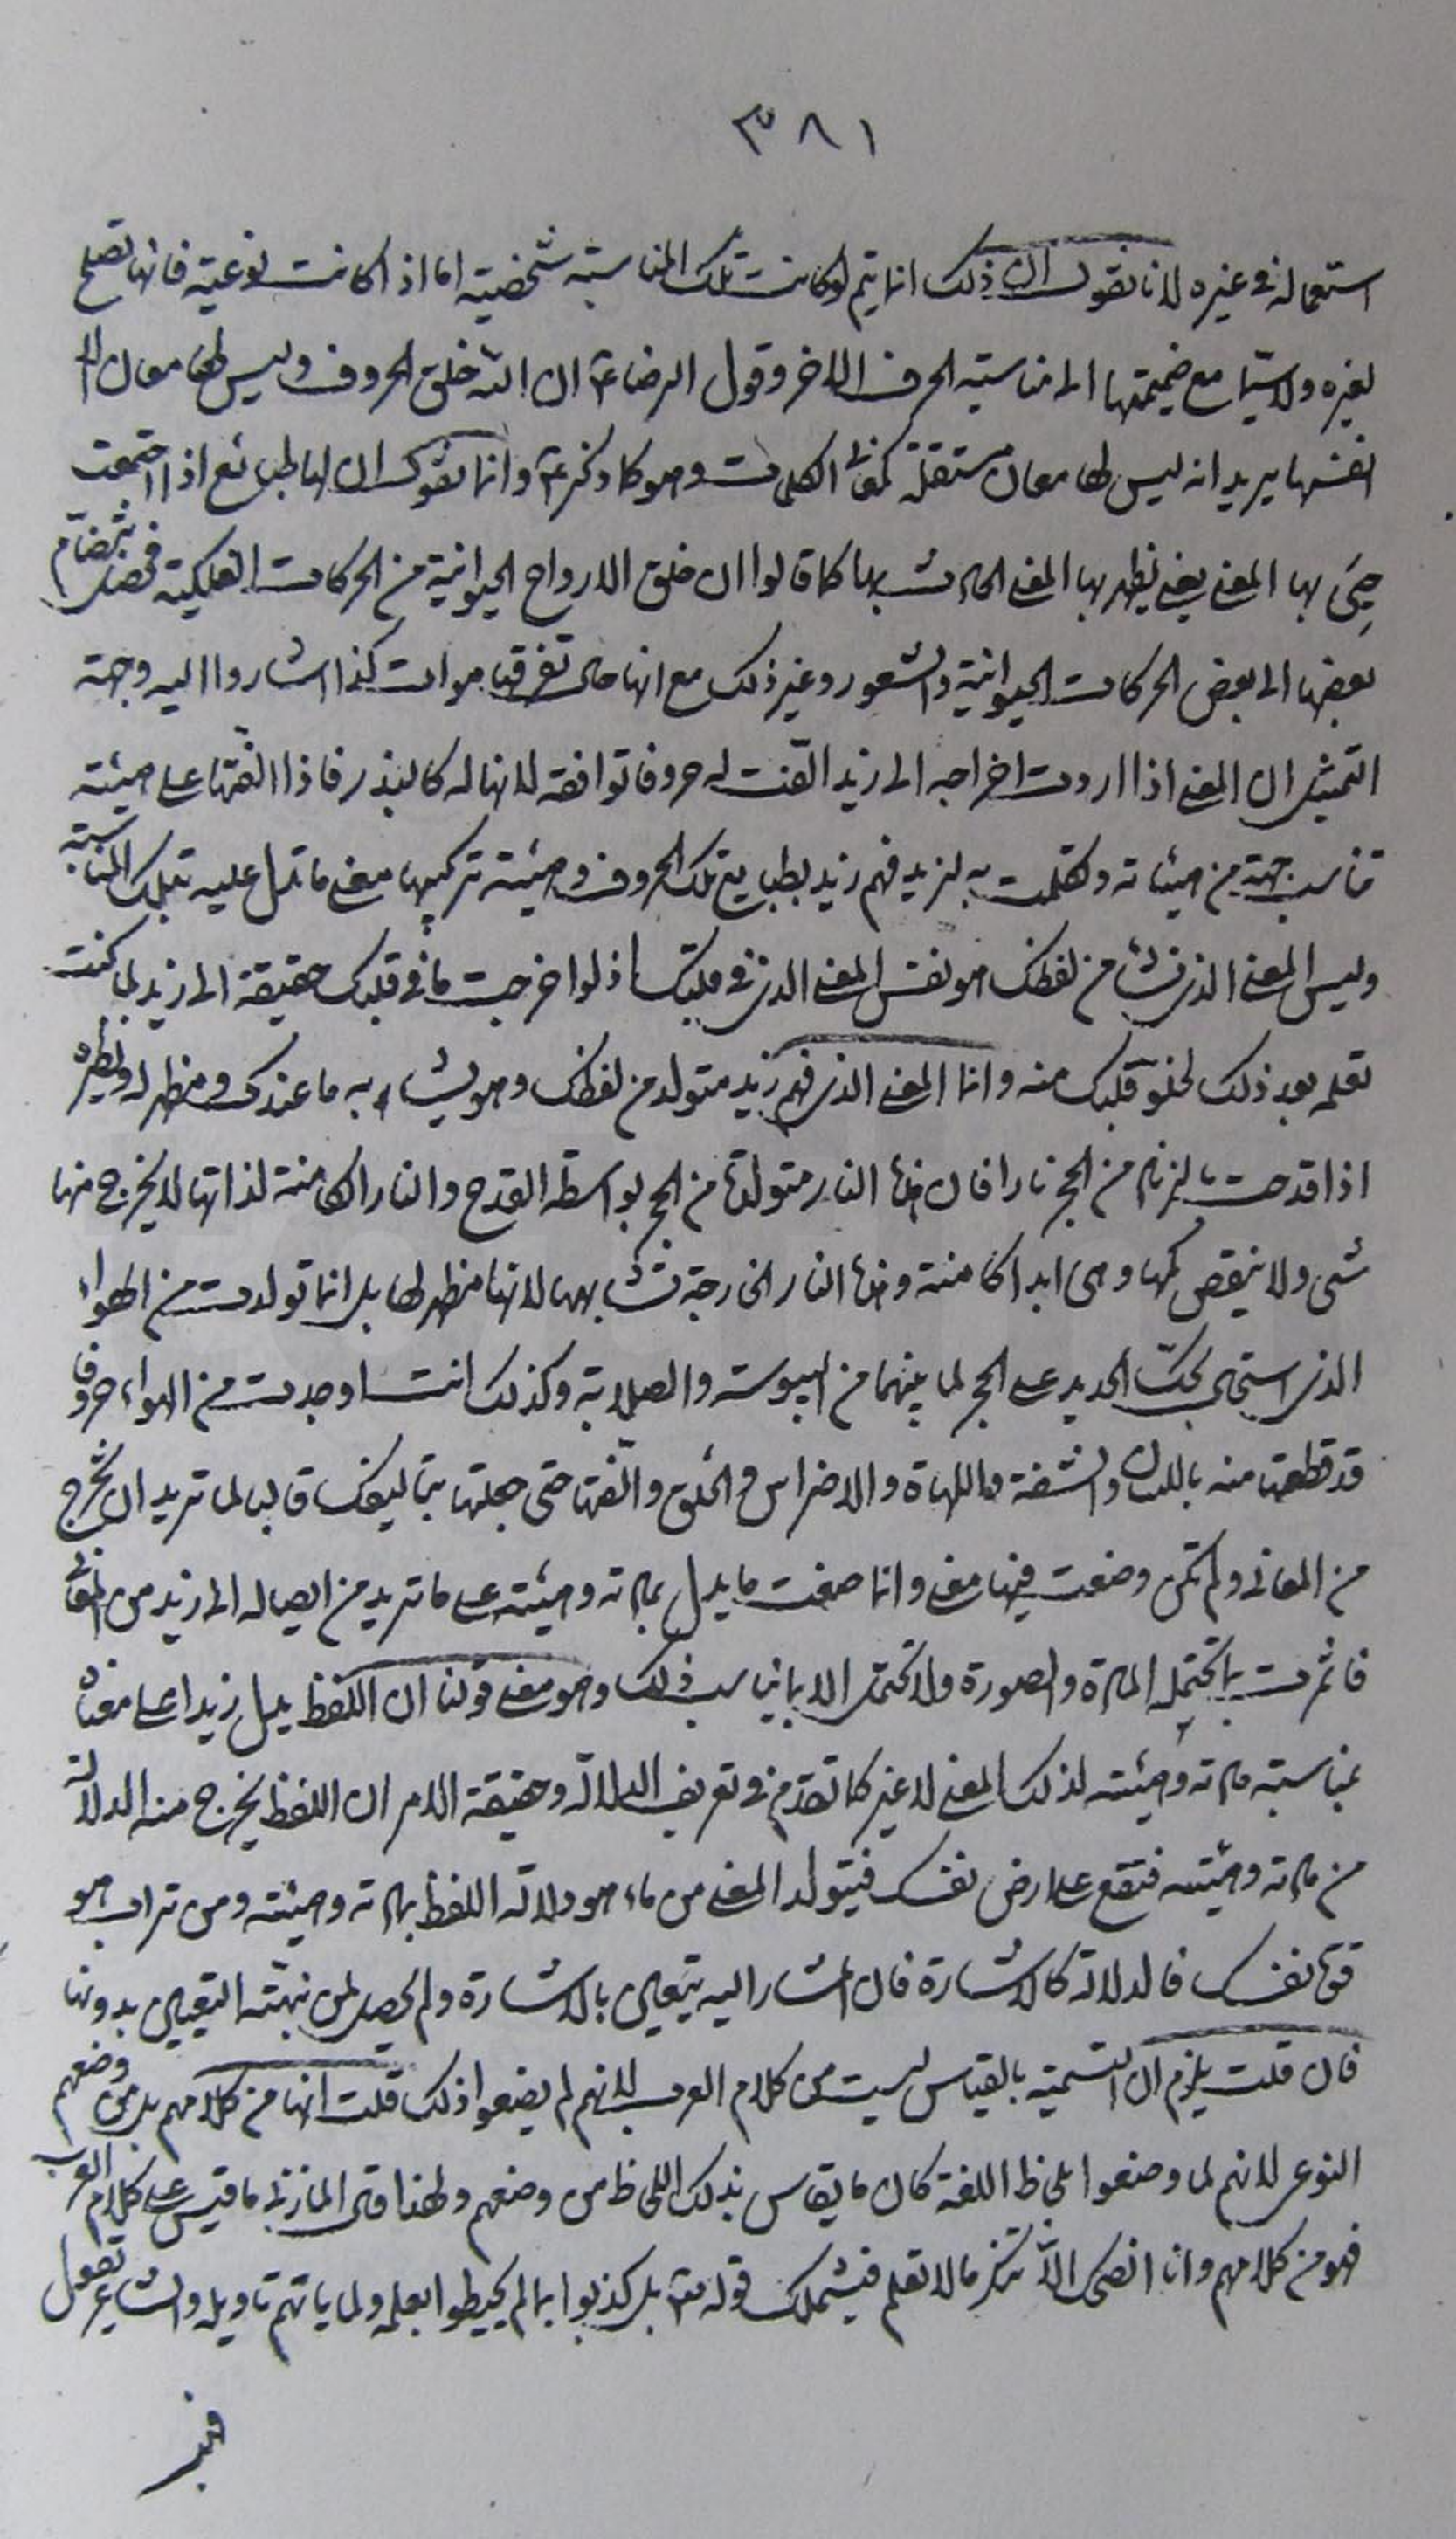 ٣٨١
استعماله في غيره لانا نقول ان ذلك انما يتم لو كانت تلك المناسبة شخصية اما اذا كانت نوعية فانها تصلح
لغيره ولا سيّما مع ضميمتها الى مناسبة الحرف الاخر وقول الرضا ع ان الله خلق الحروف وليس لها معان الا
انفسها يريد انه ليس لها معان مستقلة كمعاني الكلمات وهو كما ذكر ع وانما نقول ان لها طبائع اذا اجتمعت
جيئ بها المعنى يعني يظهر بها المعنى الحادث بها كما قالوا ان خلق الارواح الحيوانية من الحركات الفلكية فحصل بانضمام
بعضها الى بعض الحركات الحيوانية والشعور وغير ذلك مع انها حال تفرقها موات كذا اشاروا اليه وجهة
التمثيل ان المعنى اذا اردت اخراجه الى زيد الّفت له حروفا توافقه لانها له كالبذر فاذا الّفتها على هيئته
تناسب جهة من هيئاته وتكلمت به لزيد فهم زيد بطبايع تلك الحروف وهيئة تركيبها معنى ما تدل عليه بتلك المناسبة
وليس المعنى الذي نشأ من لفظك هو نفس المعنى الذي في قلبك اذ لو اخرجت ما في قلبك حقيقة الى زيد لما كنت
تعلمه بعد ذلك لخلوّ قلبك منه وانما المعنى الذي فهم زيد متولد من لفظك وهو يشابه ما عندك ومظهر له ونظيره
اذا قدحت بالزناد من الحجر نارا فان هذه النار متولدة من الحجر بواسطة القدح والنار الكامنة لذاتها لا يخرج منها
شئ ولا ينقص كمها وهي ابدا كامنة وهذه النار الخارجة تشابهها لانها مظهر لها بل انما تولدت من الهواء
الذي استحال بحكّ الحديد على الحجر لما بينهما من اليبوسة والصلابة وكذلك انت اوجدت من الهواء حروفا
قد قطعتها منه باللسان والشفة واللهاة والاضراس والحلق والّفتها حتى جعلتها بتأليفك قالبا لما تريد ان تخرج
من المعاني ولم تكن وضعت فيها معنى وانما صغت ما يدل بمادته وهيئته على ما تريد من ايصاله الى زيد من المعاني
فاثمرت بما تحتمله المادة والصورة ولا تحتمل الا ما يناسب ذلك وهو معنى قولنا ان اللفظ يدل زيدا على معناه
بمناسبة مادته وهيئته لذلك المعنى لا غير كما تقدم في تعريف الدلالة وحقيقة الامر ان اللفظ يخرج منه الدلالة
من مادته وهيئته فتقع على ارض نفسك فيتولد المعنى من ماء هو دلالة اللفظ بمادته وهيئته ومن تراب هو
قوة نفسك فالدلالة كالاشارة فان المشار اليه يتعين بالاشارة ولم يحصل لمن نبهته التعيين بدونها
فان قلت يلزم ان التسمية بالقياس ليست من كلام العرب لانهم لم يضعوا ذلك قلت انها من كلامهم بل من وضعهم
النوعي لانهم لما وضعوا بلحاظ اللغة كان ما يقاس بذلك اللحاظ من وضعهم ولهذا قال المازني ما قيس على كلام العرب
فهو من كلامهم وانا انصحك الّا تنكر ما لا تعلم فيشملك قوله تعـ بل كذبوا بما لم يحيطوا بعلمه ولما ياتهم تاويله والشاعر يقول